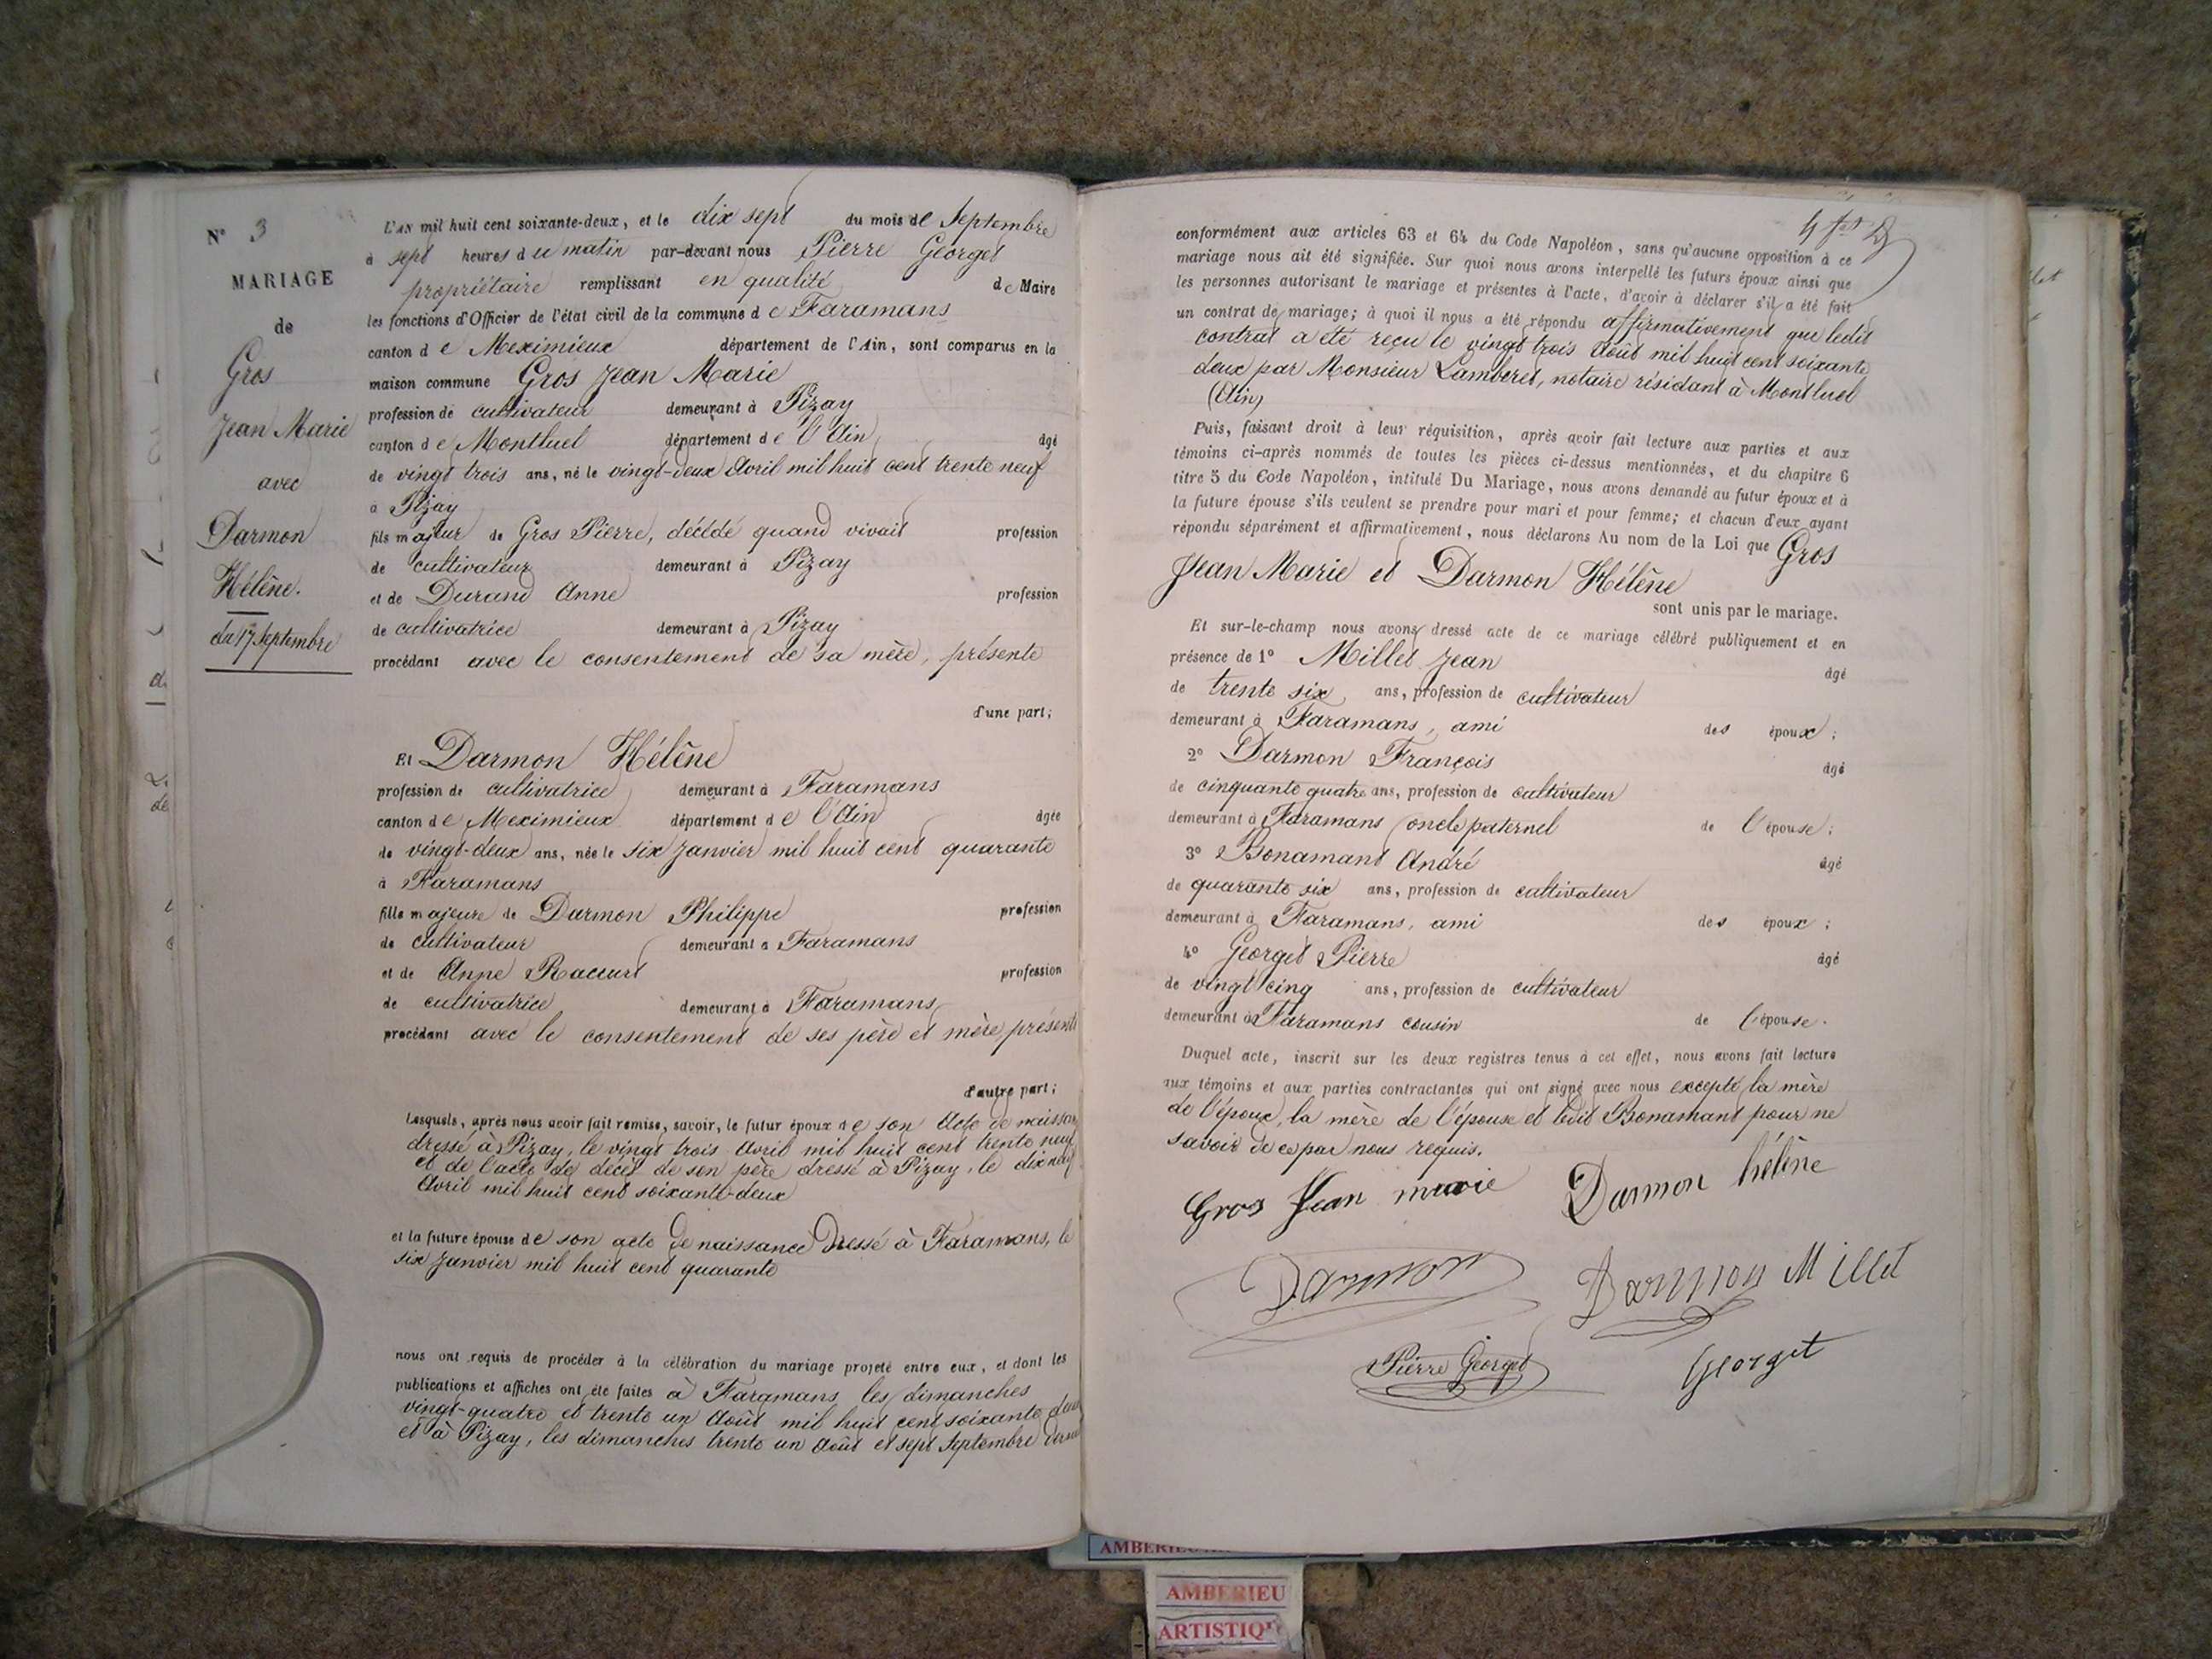 N° 3
MARIAGE
de
Gros
Jean Marie
avec
Darmon
Hélène.
du 17 Septembre
L'AN mil huit cent soixante-deux, et le dix sept du mois de Septembre
à sept heures du matin par-devant nous Pierre Georget
propriétaire remplissant en qualité de Maire
les fonctions d'Officier de l'état civil de la commune de Faramans
canton de Meximieux département de l'Ain, sont comparus en la
maison commune Gros Jean Marie
profession de cultivateur demeurant à Pizay
canton de Montluel département de l'Ain âgé
de vingt trois ans, né le vingt-deux Avril mil huit cent trente neuf
à Pizay
fils majeur de Gros Pierre, décédé quand vivait profession
de cultivateur demeurant à Pizay
et de Durand Anne profession
de cultivatrice demeurant à Pizay
procédant avec le consentement de sa mère, présente
d'une part;
Et Darmon Hélène
profession de cultivatrice demeurant à Faramans
canton de Meximieux département de l'Ain âgée
de vingt-deux ans, née le six Janvier mil huit cent quarante
à Faramans
fille majeure de Darmon Philippe profession
de cultivateur demeurant à Faramans
et de Anne Raccurt profession
de cultivatrice demeurant à Faramans
procédant avec le consentement de ses père et mère, présents
d'autre part;
Lesquels, après nous avoir fait remise, savoir, le futur époux de son acte de
dressé à Pizay, le vingt trois Avril mil huit cent trente neuf
et de l'acte de décès de son père dressé à Pizay, le dix neuf
Avril mil huit cent soixante-deux
et la future épouse de son acte de naissance dressé à Faramans, le
six Janvier mil huit cent quarante
nous ont requis de procéder à la célébration du mariage projeté entre eux, et dont les
publications et affiches ont été faites à Faramans les dimanches
vingt-quatre et trente un Août mil huit cent soixante deux
et à Pizay, les dimanches trente un Août et sept Septembre
conformément aux articles 63 et 64 du Code Napoléon, sans qu'aucune opposition à ce
mariage nous ait été signifiée. Sur quoi nous avons interpellé les futurs époux ainsi que
les personnes autorisant le mariage et présentes à l'acte, d'avoir à déclarer s'il a été fait
un contrat de mariage; à quoi il nous a été répondu affirmativement que ledit
contrat a été reçu le vingt trois Août mil huit cent soixante
deux par Monsieur Lamberet, notaire résidant à Montluel
(Ain)
Puis, faisant droit à leur réquisition, après avoir fait lecture aux parties et aux
témoins ci-après nommés de toutes les pièces ci-dessus mentionnées, et du chapitre 6
titre 5 du Code Napoléon, intitulé Du Mariage, nous avons demandé au futur époux et à
la future épouse s'ils veulent se prendre pour mari et pour femme; et chacun d'eux ayant
répondu séparément et affirmativement, nous déclarons Au nom de la Loi que Gros
Jean Marie et Darmon Hélène
sont unis par le mariage.
Et sur-le-champ nous avons dressé acte de ce mariage célébré publiquement et en
présence de 1° Millet Jean âgé
de trente six ans, profession de cultivateur
demeurant à Faramans, ami des époux;
2° Darmon François âgé
de cinquante quatre ans, profession de cultivateur
demeurant à Faramans oncle paternel de l'épouse;
3° Bonamant André âgé
de quarante six ans, profession de cultivateur
demeurant à Faramans, ami des époux;
4° Georget Pierre âgé
de vingt cinq ans, profession de cultivateur
demeurant à Faramans cousin de l'épouse.
Duquel acte, inscrit sur les deux registres tenus à cet effet, nous avons fait lecture
aux témoins et aux parties contractantes qui ont signé avec nous excepté la mère
de l'époux, la mère de l'épouse et ledit Bonamant pour ne
savoir de ce par nous requis.
Gros Jean marie Darmon hélène
Darmon Darmon Millet
Pierre Georget Georget
AMBERIEU
ARTISTIQ